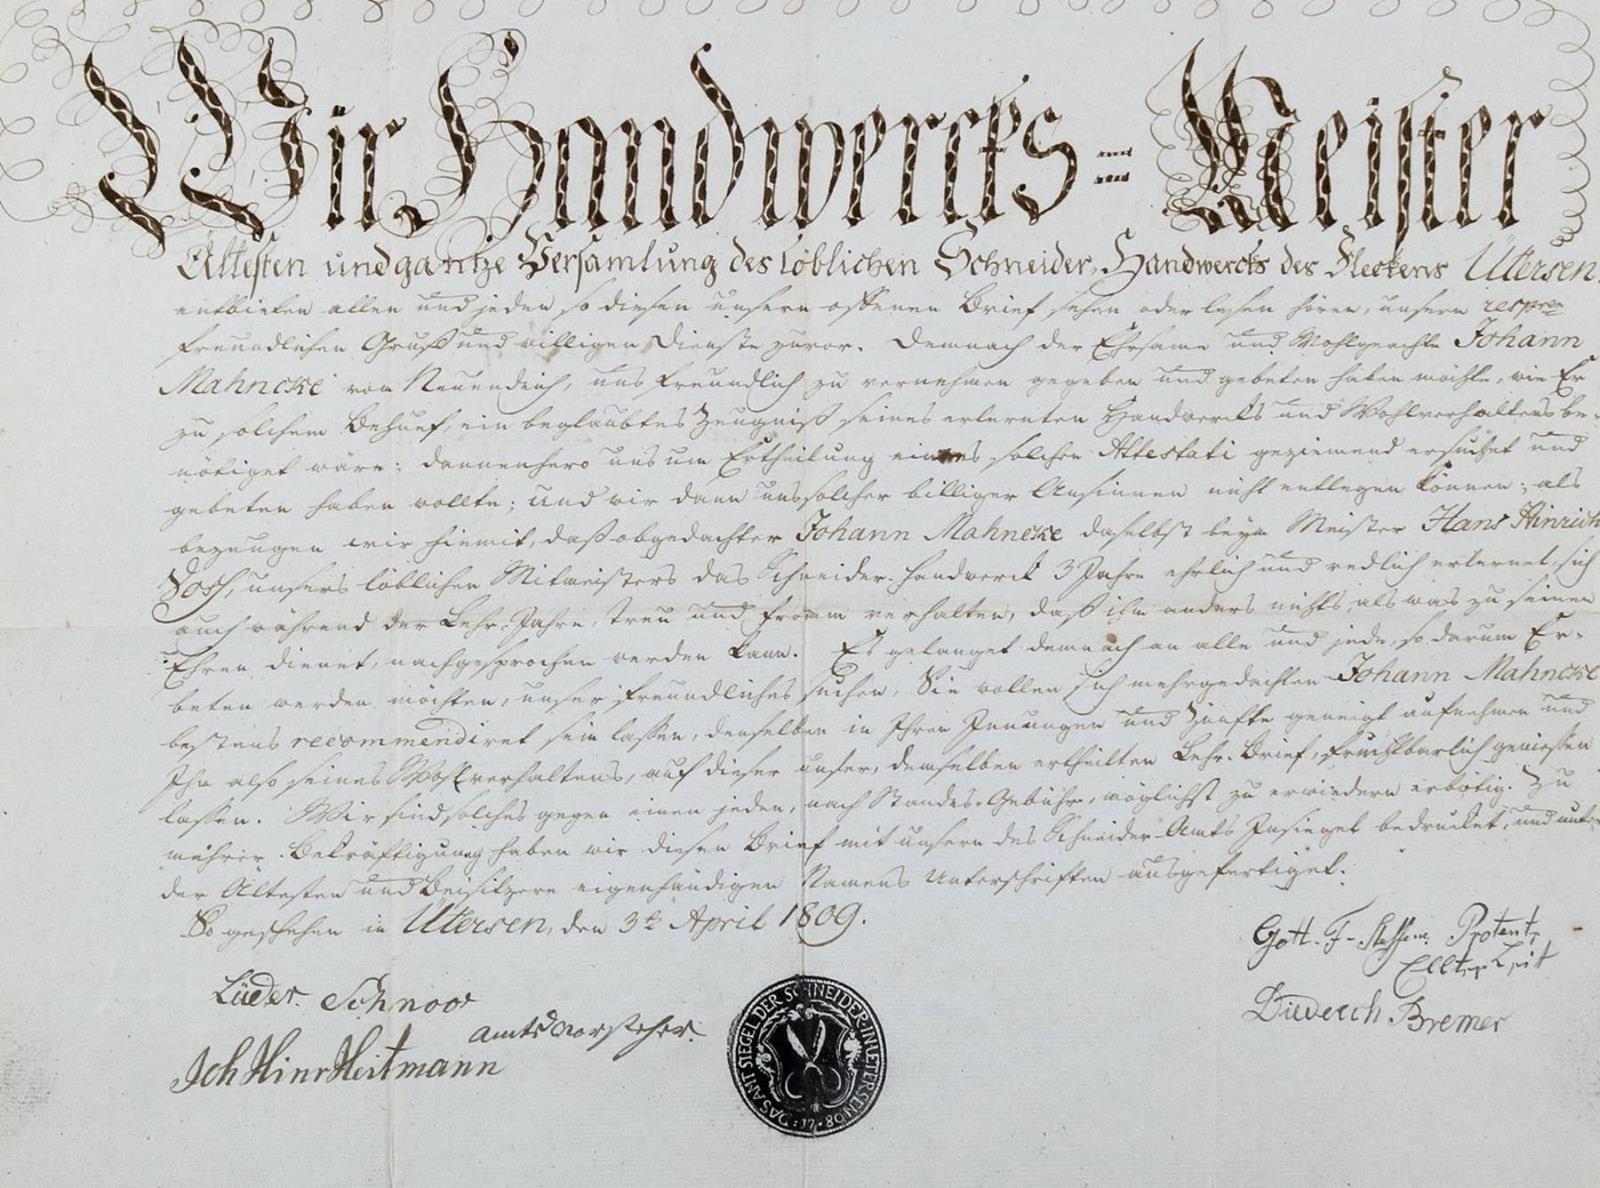 Wir Handwercks-Meister
Ältesten und gantze Versamlung des löblichen Schneider-Handwercks des Fleckens Ütersen
entbieten allen und jeden so diesen unsern offenen Brief sehen oder lesen hören, unsern respven
freundlichen Gruß und willigen Dienste zuvor. Demnach der Ehrsame und Wohlgeachte Johann
Mahncke von Neuendeich, uns freundlich zu vernehmen gegeben und gebeten haben möchte, wie Er
zu solchem Behuef, ein beglaubtes Zeugniß seines erlernten Handwercks und Wohlverhaltens be-
nötiget wäre; dannenhero uns um Ertheilung eines solchen Attestati geziemend ersuchet und
gebeten haben wollte; und wir dann uns solcher billiger Ansinnen nicht entlegen können; als
bezeugen wir hiemit, daß obgedachter Johann Mahncke daselbst beym Meister Hans Hinrich
Vosh, unsers löblichen Mitmeisters das Schneider-Handwerck 3 Jahre ehrlich und redlich erlernet, sich
auch während der Lehr-Jahre, treu und fromm verhalten, daß ihm anders nichts als was zu seinen
Ehren dienet, nachgesprochen werden kann. Es gelanget demnach an alle und jede, so darum Er-
beten werden möchten, unser freundliches suchen, Sie wollen sich mehrgedachten Johann Mahncke
bestens recommendiret sein lassen, denselben in Ihren Innungen und Zünfte geneigt aufnehmen und
Ihn also seines Wohlverhaltens, auf dieser unser, demselben ertheilten Lehr-Brief, fruchtbarlich geniessen
lassen. Wir sind solches gegen einen jeden, nach Standes-Gebühr, möglichst zu erwiedern erbötig. Zu
mehrer Bekräftigung haben wir diesen Brief mit unsern des Schneider-Amts Insiegel bedrucket, und unter
der Ältesten und Beisitzere eigenhändigen Namens Unterschriften ausgefertiget.
So geschehen in Ütersen, den 3t April 1809.
Gott. F. Steffens Protent
Ellter Zeit
Lüder Schnoor
Diederich Bremer
amtsvorsteher.
Joh Hinr Heitmann
DAS AMT SIEGEL DER SCHNEIDER IN UETERSEN 1780